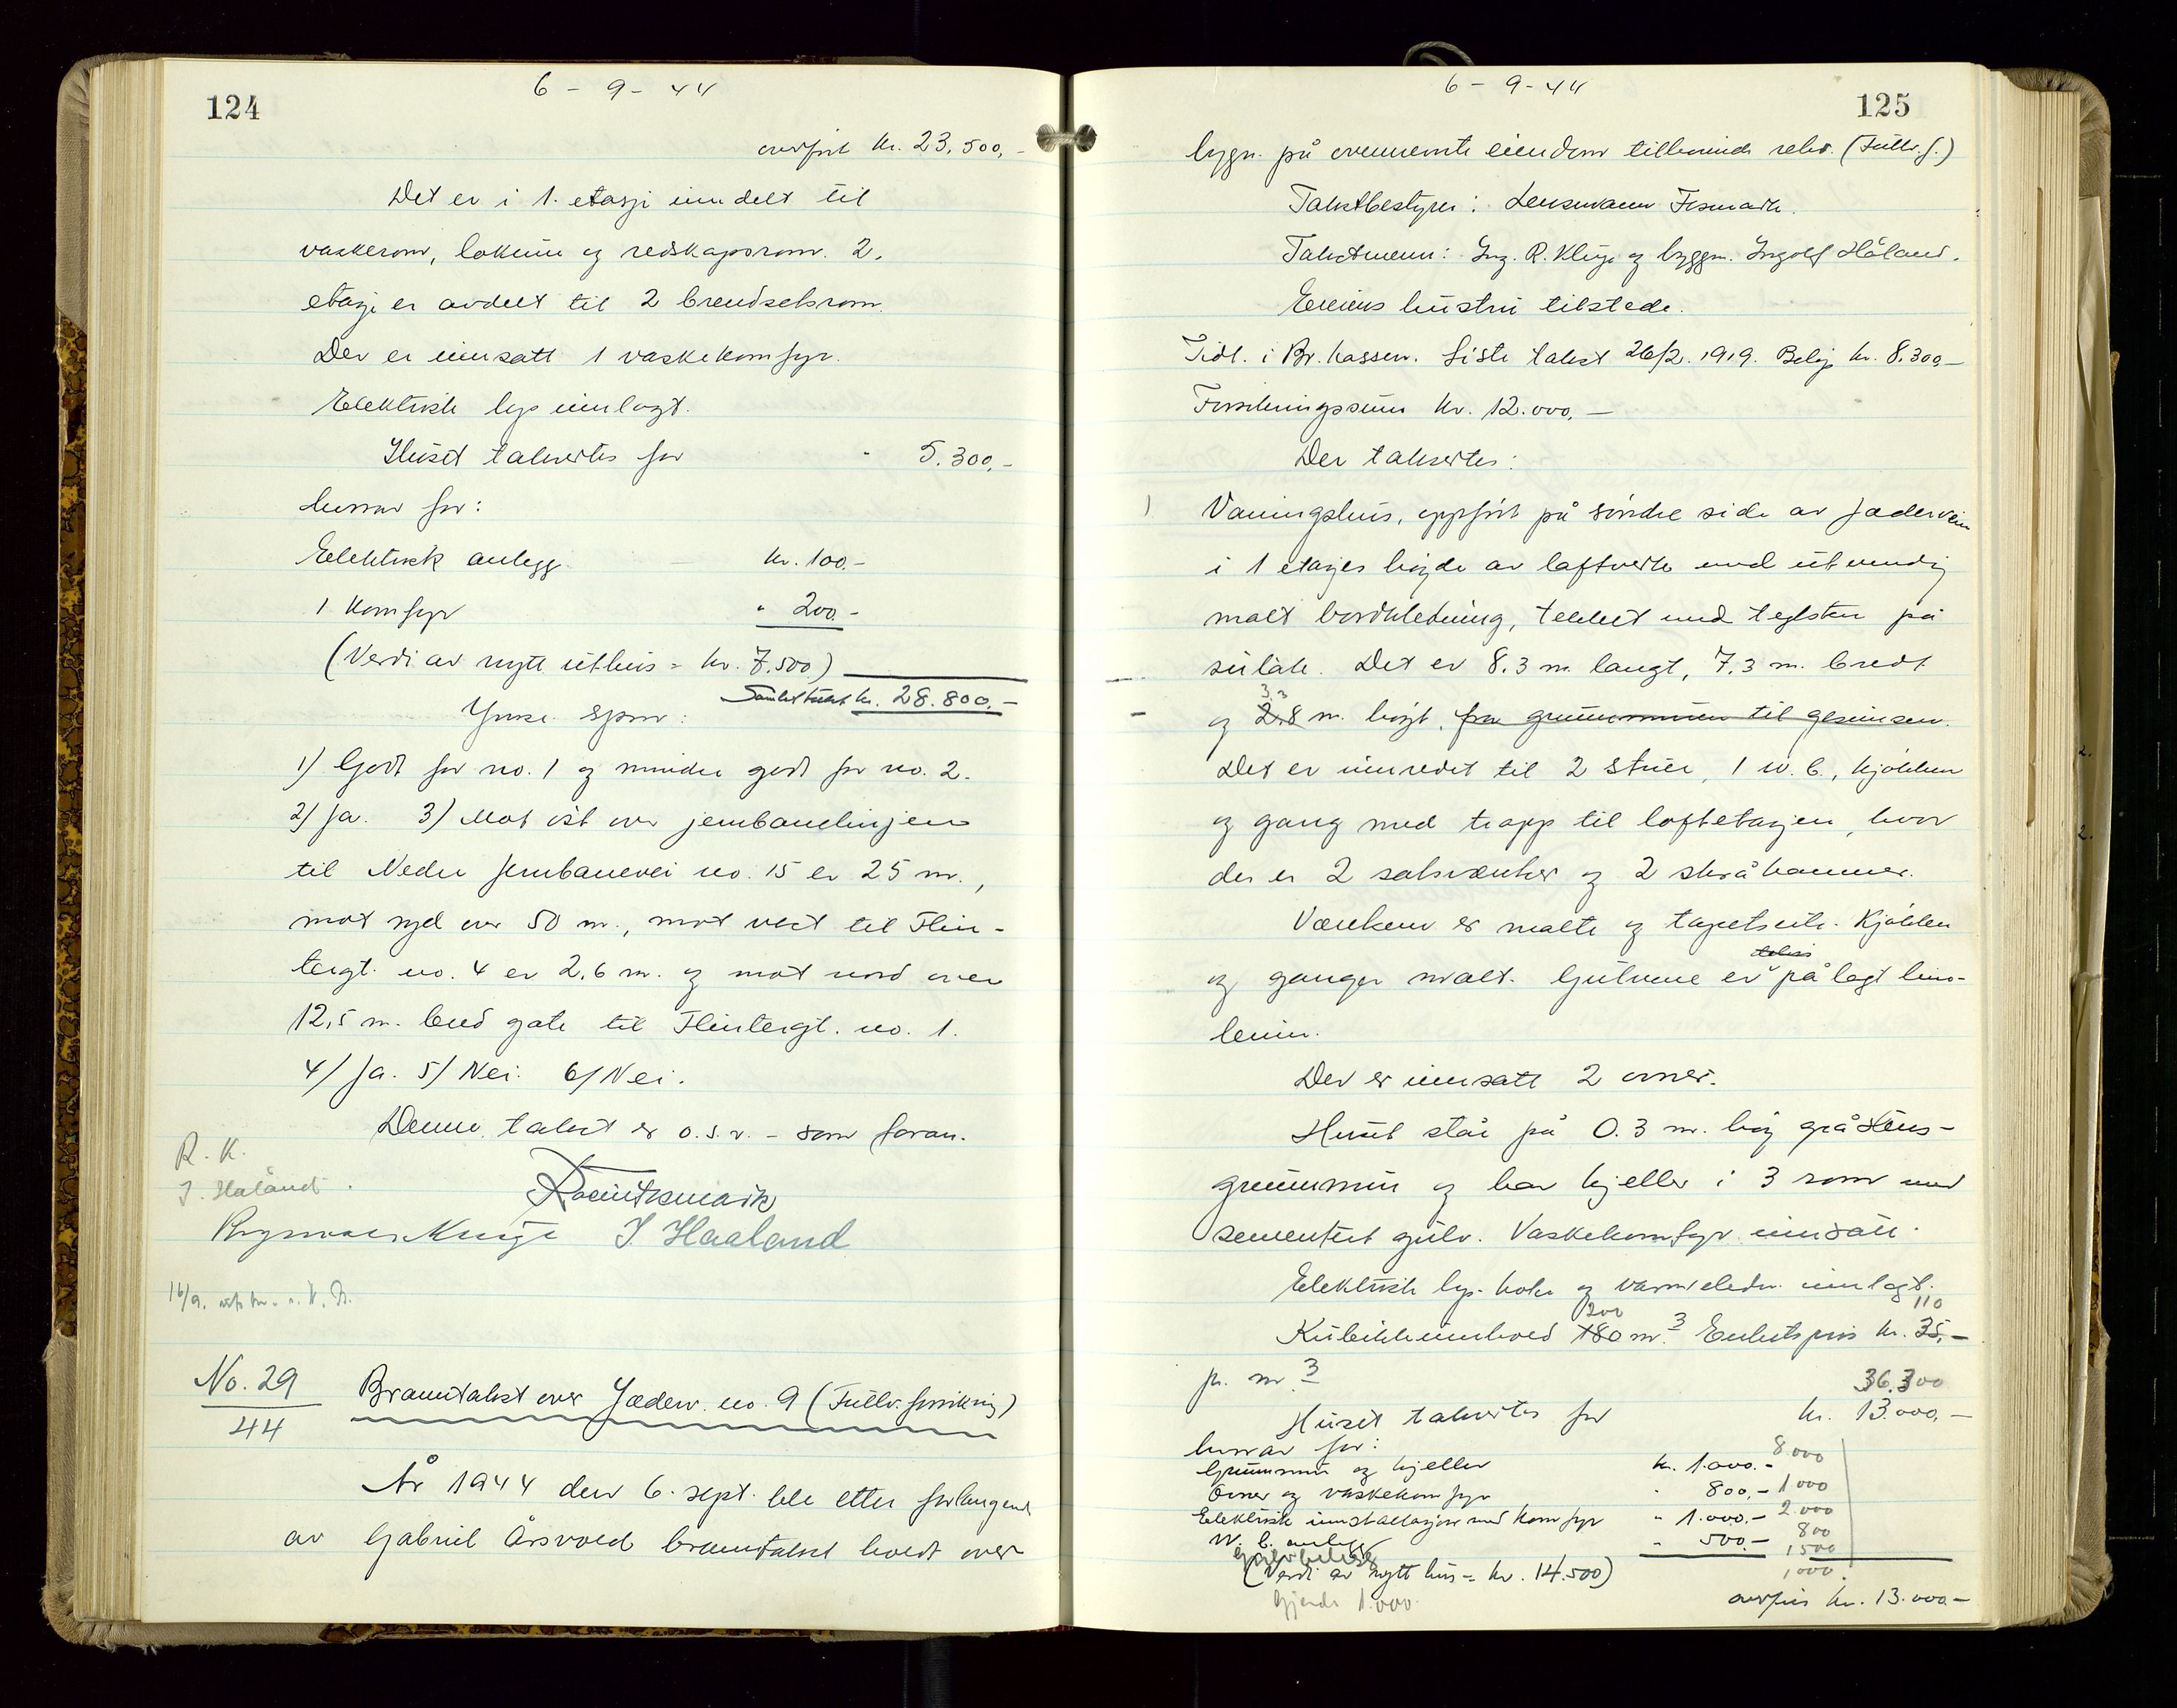 124
6 - 9 - 44
overført kr. 23.500,-
Det er i 1. etasje inndelt til
vaskerom, lokum og redskapsrom. 2.
etasje er avdelt til 2 brendselsrom.
Der er innsatt 1 vaskekomfyr.
Elektrisk lys innlagt.
Huset takseres for " 5.300,-
hvorav for:
Elektrisk anlegg kr. 100.-
1 komfyr " 200.-
(Verdi av nytt uthus = kr. 7.500)
Samlet takst kr. 28.800.-
Ymse spm:
1) Godt for no. 1 og mindre godt for no. 2.
2) Ja. 3) Mot øst over jernbanelinjen
til Nedre Jernbanevei no. 15 er 25 m.,
mot syd over 50 m., mot vest til Flin-
tergt. no. 4 er 2.6 m. og mot nord over
12,5 m. bred gate til Flintergt. no. 1.
4) Ja. 5) Nei. 6) Nei.
Denne takst er o.s.v. - som foran.
R. K.
I. Haaland.
I. Haaland
16/9.
No. 29
44
Branntakst over Jæderv. no. 9 (Fullv. forsikring)
År 1944 den 6. sept. ble etter forlangende
av Gabriel Årsvold branntakst holdt over
6 - 9 - 44
125
bygn. på ovennevnte eiendom tilhørende rekv. (Fullv. f.)
Takstbestyrer: Lensmann Tismark.
Takstmenn: Ing. R. Kluge og byggm. Ingolf Håland.
Eierens hustru tilstede.
Tidl. i Br. kassen. Siste takst 26/2. 1919. Beløp kr. 8.300,-
Forsikringssum kr. 12.000,-
Der takseres:
1 Vaningshus, oppført på søndre side av Jæderveien
i 1 etasjes høyde av lafteverk med utvendig
malt bordkledning, tekket med teglsten på
sulåte. Det er 8.3 m. langt, 7.3 m. bredt
3.3
og 2.8 m. høyt, fra grunnmuren til gesimsen.
Det er innredet til 2 stuer, 1 w.c., kjøkken
og gang med trapp til loftetasjen, hvor
der er 2 salsværelser og 2 skråkammer.
Værelsene er malte og tapetserte. Kjøkken
delvis
og ganger malt. Gulvene er pålagt lino-
leum.
Der er innsatt 2 ovner.
Huset står på 0.3 m. høy gråstens-
grunnmur og har kjeller i 3 rom med
sementert gulv. Vaskekomfyr innsatt.
Elektrisk lys- koke og varmeledn. innlagt.
200 110
Kubikkinnhold 180 m.3 Enhetspris kr. 35,-
pr. m.3
36.300
Huset takseres for kr. 13.000,-
hvorav for:
Grunnmur og kjeller kr. 1.000.- 8.000
Ovner og vaskekomfyr " 800,- 1000
Elektrisk installasjon med komfyr " 1.000.- 2.000
W. C. anlegg " 500.- 800
1500
(Verdi av nytt hus = kr. 14.500) 1000
Gjerde 1.000
overføres kr. 13.000-